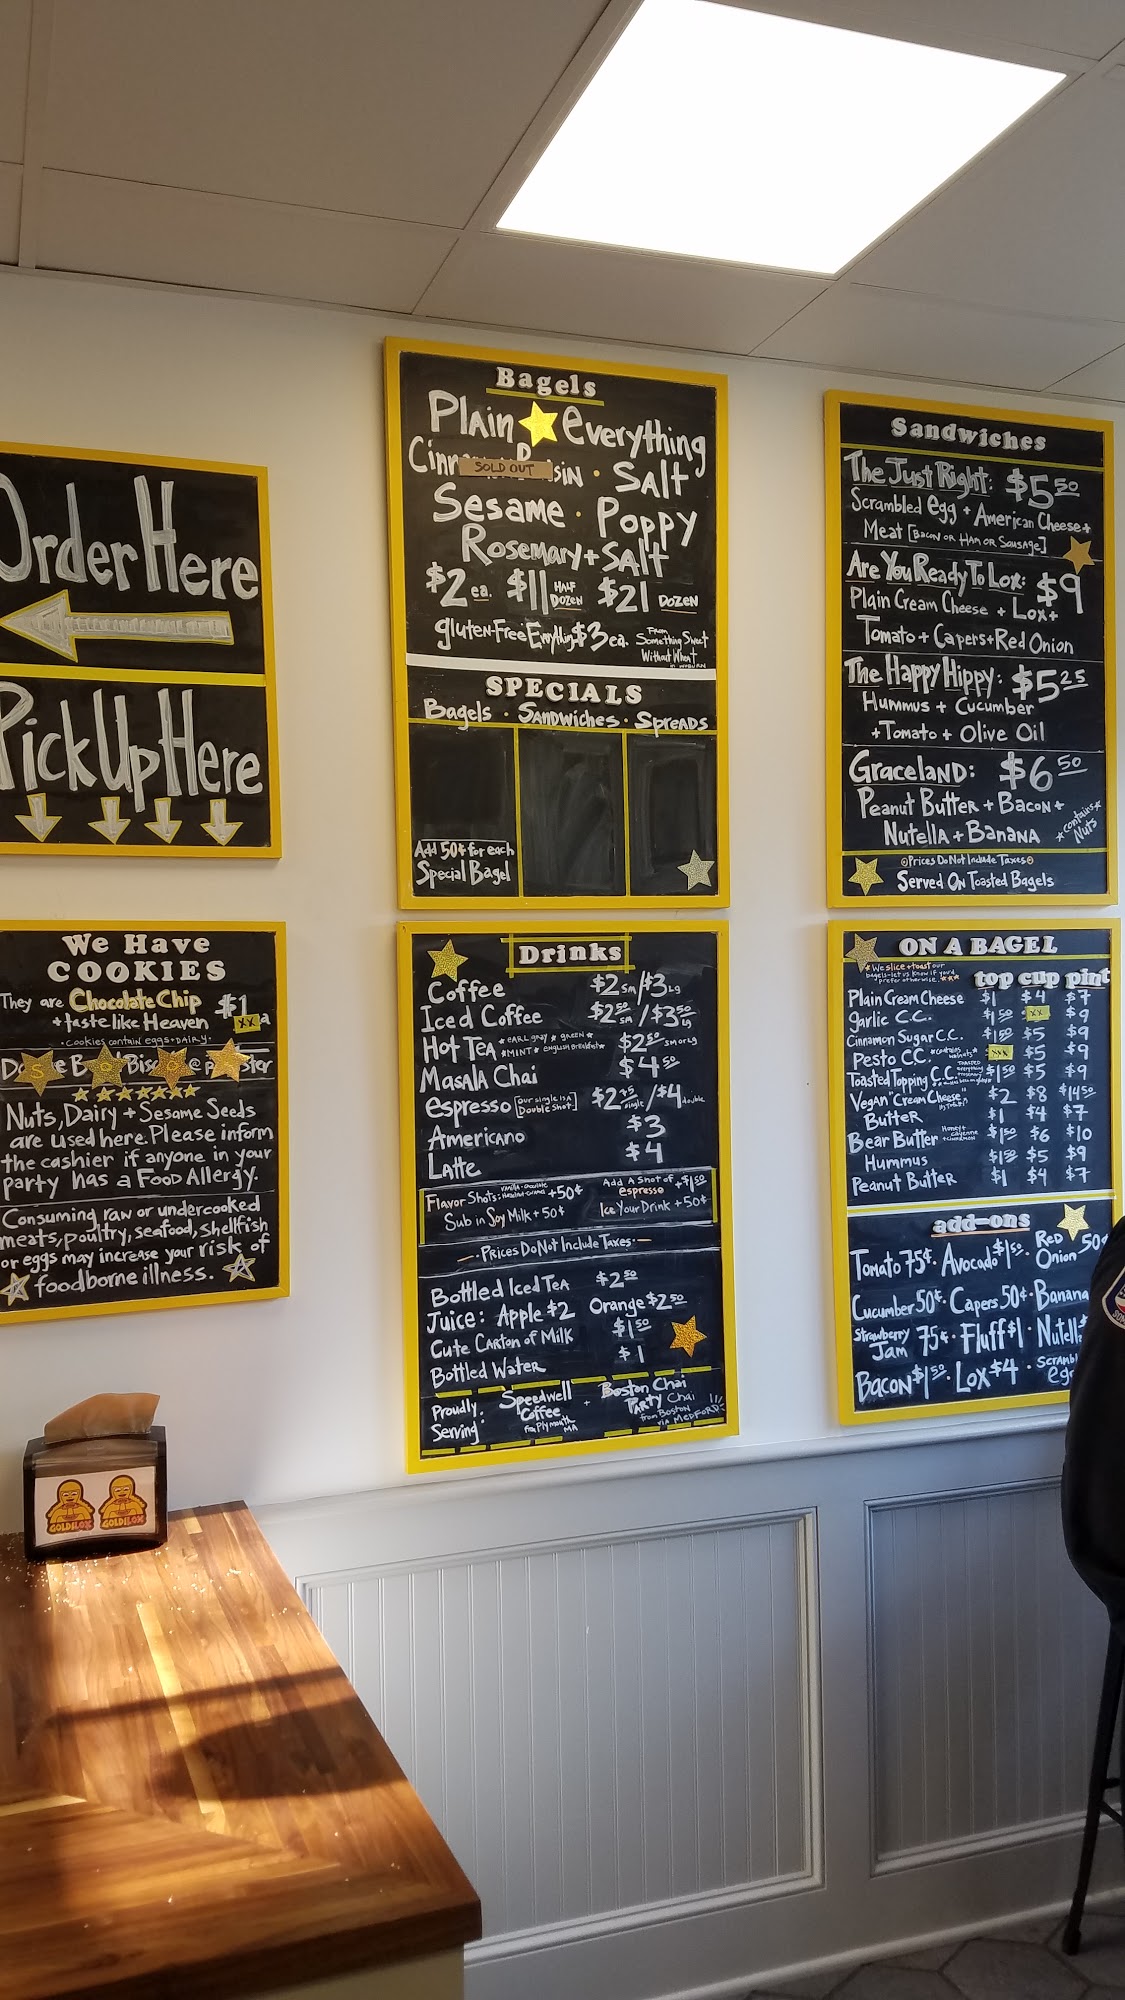 Order Here
Pick Up Here
We Have
COOKIES
They are Chocolate Chip
+ taste like Heaven
$1
XX
• Cookies contain eggs + DAIRY •
S O O
Nuts, Dairy + Sesame Seeds
are used here. Please inform
the cashier if anyone in your
party has a Food Allergy.
Consuming raw or undercooked
meats, poultry, seafood, shellfish
or eggs may increase your risk of
foodborne illness.
GOLDILOX GOLDILOX
Bagels
Plain Everything
SOLD OUT
• Salt
Sesame • Poppy
Rosemary + Salt
$2 ea. $11 HALF DOZEN $21 DOZEN
gluten-Free Everything $3 ea. From Something Sweet Without Wheat in WOBURN
SPECIALS
Bagels • Sandwiches • Spreads
Add 50¢ for each
Special Bagel
Drinks
Coffee $2 sm/$3 Lg
Iced Coffee $2 50 sm/$3 50 Lg
Hot Tea * EARL gray * gREEN * * MINT * ENgLISH BREAKFAST * $2 50 sm or Lg
Masala Chai $4 50
espresso [our single is a Double Shot] single/$4 double
Americano $3
Latte $4
Flavor Shots: +50¢
Add A Shot of espresso +$1 50
Sub in Soy Milk + 50¢
Ice Your Drink + 50¢
- Prices Do Not Include Taxes -
Bottled Iced Tea $2 50
Juice: Apple $2 Orange $2 50
Cute Carton of Milk $1 50
Bottled Water $1
Proudly Serving:
Speedwell Coffee from Plymouth MA
+
Boston Chai Party Chai from Boston via MEDFORD!
Sandwiches
The Just Right: $5 50
Scrambled egg + American Cheese +
Meat [Bacon or Ham or Sausage]
Are You Ready To Lox: $9
Plain Cream Cheese + Lox +
Tomato + Capers + Red Onion
The Happy Hippy: $5 25
Hummus + Cucumber
+ Tomato + Olive Oil
Graceland: $6 50
Peanut Butter + Bacon +
Nutella + Banana
*contains* Nuts
Prices Do Not Include Taxes
Served On Toasted Bagels
ON A BAGEL
* We slice + toast our
bagels - let us know if you'd
prefer otherwise. ***
top cup pint
Plain Cream Cheese $1 $4 $7
garlic C.C. $1 50 XX $9
Cinnamon Sugar C.C. $1 50 $5 $9
Pesto C.C. *contains walnuts* $5 $9
Toasted Topping C.C. $1 50 $5 $9
Vegan "Cream Cheese" $2 $8 $14 50
Butter $1 $4 $7
Bear Butter Honey + cayenne + cinnamon $1 50 $6 $10
Hummus $1 50 $5 $9
Peanut Butter $1 $4 $7
add-ons
Tomato 75¢ • Avocado $1 50 • Red Onion 50¢
Cucumber 50¢ • Capers 50¢ • Banana
Strawberry Jam 75¢ • Fluff $1 •
Bacon $1 50 • Lox $4 •